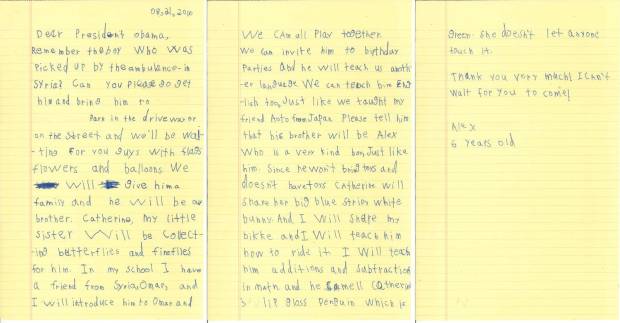 08.21.2016
Dear President obama,
Remember the boy who was
picked up by the ambulance in
Syria? Can you please go get
him and bring him to
Park in the driveway or
on the street and we'll be wai-
ting for you guys with flags
flowers and balloons. We
will give him a
family and he will be our
brother. Catherine, my little
sister will be collect-
ing butterflies and fireflies
for him. In my school I have
a friend from Syria, Omar, and
I will introduce him to Omar and
We can all play together.
We can invite him to birthday
parties and he will teach us anoth-
er language. We can teach him eng-
lish too, Just like we taught my
friend Auto from Japan. Please tell him
that his brother will be Alex
who is a very kind boy, Just like
him. Since he won't bring toys and
doesn't have toys Catherine will
share her big blue stripy white
bunny. And I will share my
bikke and I will teach him
how to ride it. I will teach
him additions and subtractions
in math and he smell Catherine
's lip gloss penguin which is
green. she doesn't let anyone
touch it.
Thank you very much! I can't
wait for you to come!
Alex
6 years old